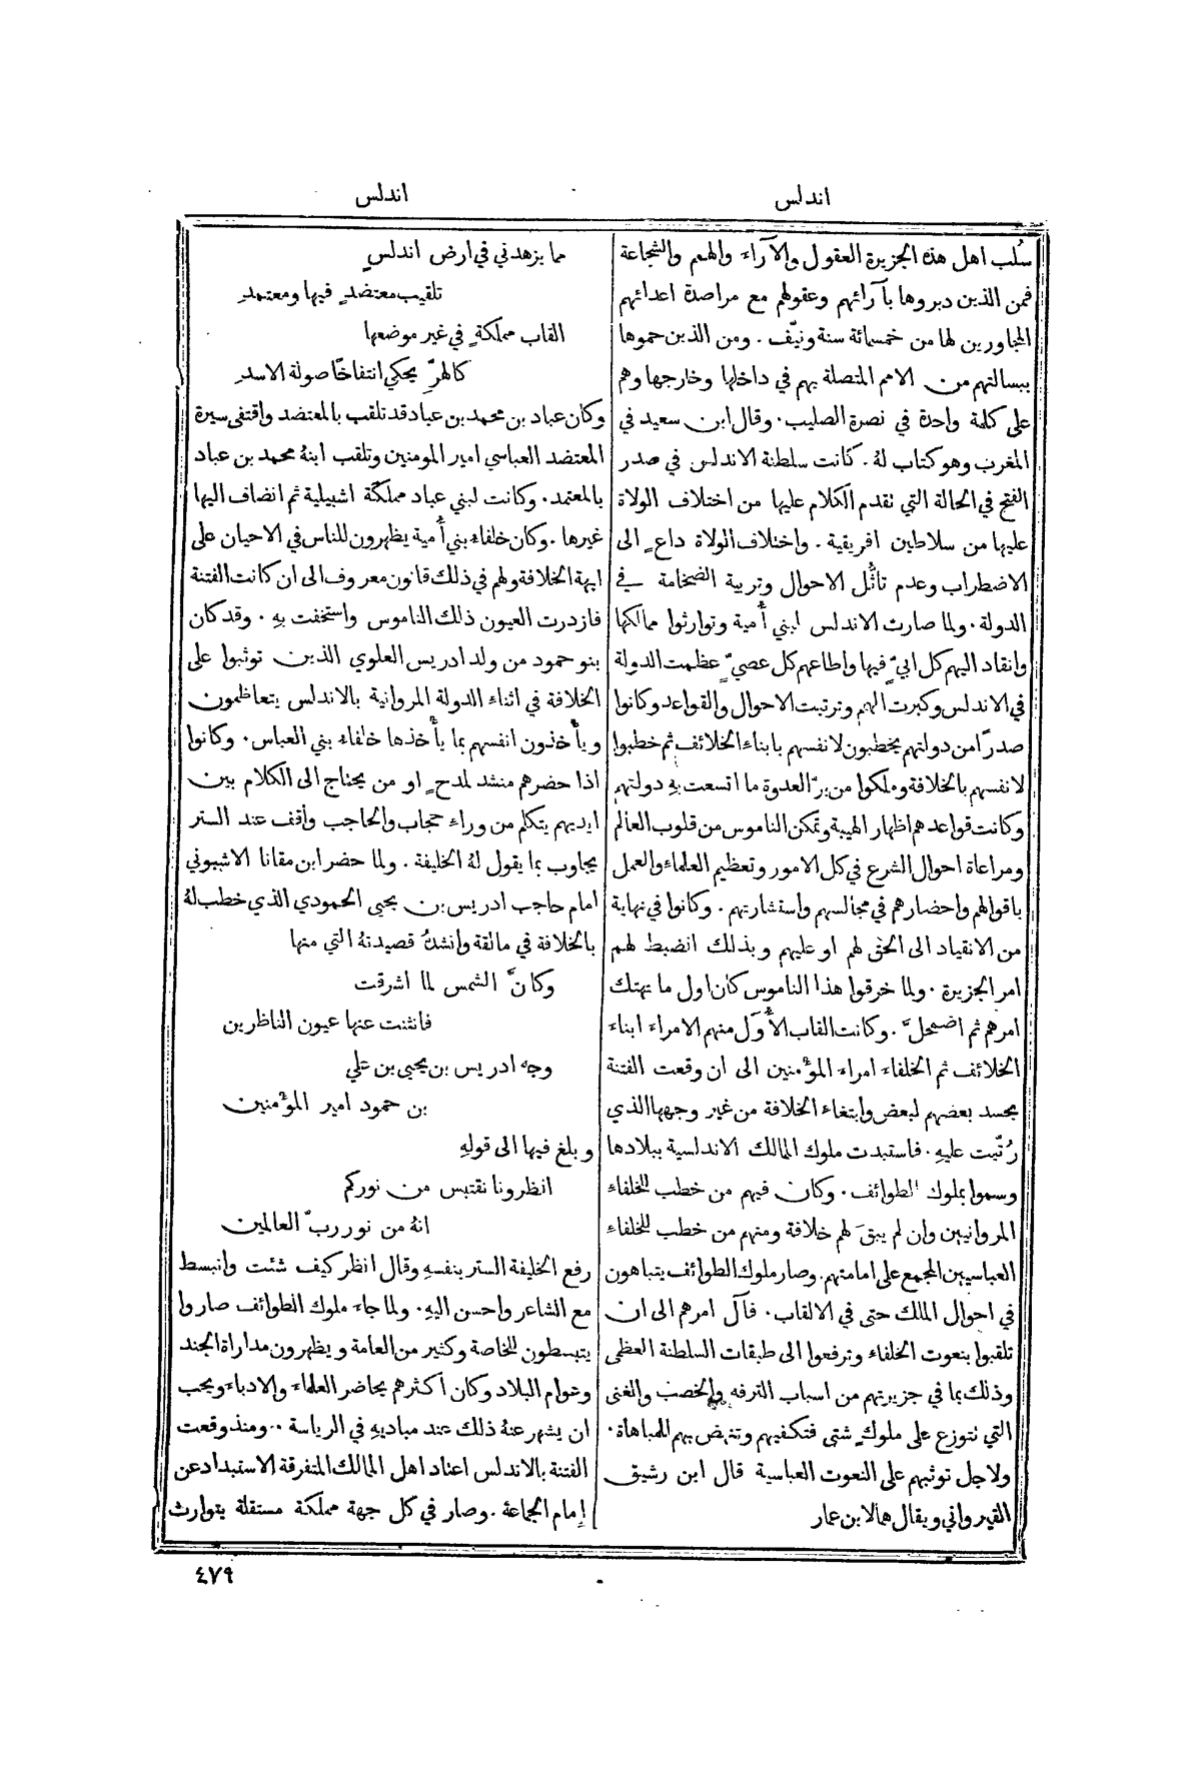 اندلس
اندلس
سُلب اهل هذه الجزيرة العقول والآراء والهمم والشجاعة
فمن الذين دبروها بآرائهم وعقولهم مع مراصدة اعدائهم
المجاورين لها من خمسمائة سنة ونيّف. ومن الذين حموها
ببسالتهم من الامم المتصلة بهم في داخلها وخارجها وهم
على كلمة واحدة في نصرة الصليب. وقال ابن سعيد في
المغرب وهو كتاب لهُ. كانت سلطنة الاندلس في صدر
الفتح في الحالة التي تقدم الكلام عليها من اختلاف الولاة
عليها من سلاطين افريقية. واختلاف الولاة داعٍ الى
الاضطراب وعدم تأثُّل الاحوال وتربية الضخامة في
الدولة. ولما صارت الاندلس لبني أُمية وتوارثوا ممالكها
وانقاد اليهم كل ابيّ فيها واطاعهم كل عصيّ عظمت الدولة
في الاندلس وكبرت الهمم وترتبت الاحوال والقواعد وكانوا
صدرًا من دولتهم يخطبون لانفسهم بابناء الخلائف ثم خطبوا
لانفسهم بالخلافة وملكوا من برّ العدوة ما اتسعت بهِ دولتهم
وكانت قواعدهم اظهار الهيبة وتمكن الناموس من قلوب العالم
ومراعاة احوال الشرع في كل الامور وتعظيم العلماء والعمل
باقوالهم واحضارهم في مجالسهم واستشارتهم. وكانوا في نهاية
من الانقياد الى الحق لهم او عليهم وبذلك انضبط لهم
امر الجزيرة. ولما خرقوا هذا الناموس كان اول ما تهتك
امرهم ثم اضمحلَّ. وكانت القاب الأَوَل منهم الامراء ابناء
الخلائف ثم الخلفاء امراء المؤمنين الى ان وقعت الفتنة
بحسد بعضهم لبعض وابتغاء الخلافة من غير وجهها الذي
رُتّبت عليهِ. فاستبدت ملوك الممالك الاندلسية ببلادها
وسموا بملوك الطوائف. وكان فيهم من خطب للخلفاء
المروانيين وان لم يبقَ لهم خلافة ومنهم من خطب للخلفاء
العباسيين المجمع على امامتهم. وصار ملوك الطوائف يتباهون
في احوال الملك حتى في الالقاب. فآل امرهم الى ان
تلقبوا بنعوت الخلفاء وترفعوا الى طبقات السلطنة العظمى
وذلك بما في جزيرتهم من اسباب الترفه والخصب والغنى
التي نتوزع على ملوكٍ شتى فتكفيهم وتنهض بهم للمباهاة.
ولاجل توثبهم على النعوت العباسية قال ابن رشيق
القيرواني ويقال هما لابن عمار
مما يزهدني في ارض اندلسٍ
تلقيب معتضدٍ فيها ومعتمدِ
القاب مملكةٍ في غير موضعها
كالهرِّ يحكي انتفاخًا صولة الاسدِ
وكان عباد بن محمد بن عباد قد تلقب بالمعتضد واقتفى سيرة
المعتضد العباسي امير المومنين وتلقب ابنهُ محمد بن عباد
بالمعتمد. وكانت لبني عباد مملكة اشبيلية ثم انضاف اليها
غيرها. وكان خلفاء بني أُمية يظهرون للناس في الاحيان على
ابهة الخلافة ولهم في ذلك قانون معروف الى ان كانت الفتنة
فازدرت العيون ذلك الناموس واستخفت بهِ. وقد كان
بنو حمود من ولد ادريس العلوي الذين توثبوا على
الخلافة في اثناء الدولة المروانية بالاندلس يتعاظمون
ويأْخذون انفسهم بما يأْخذها خلفاء بني العباس. وكانوا
اذا حضرهم منشد لمدحٍ او من يحتاج الى الكلام بين
ايديهم يتكلم من وراء حجاب والحاجب واقف عند الستر
يجاوب بما يقول لهُ الخليفة. ولما حضر ابن مقانا الاشبوني
امام حاجب ادريس بن يحيى الحمودي الذي خطب لهُ
بالخلافة في مالقة وانشدهُ قصيدتهُ التي منها
وكأنَّ الشمس لما اشرقت
فانثنت عنها عيون الناظرين
وجه ادريس بن يحيى بن علي
بن حمود امير المؤمنين
وبلغ فيها الى قولهِ
انظرونا نقتبس من نوركم
انهُ من نور ربّ العالمين
رفع الخليفة الستر بنفسهِ وقال انظر كيف شئت وانبسط
مع الشاعر واحسن اليهِ. ولما جاء ملوك الطوائف صاروا
يتبسطون للخاصة وكثير من العامة ويظهرون مداراة الجند
وعوام البلاد وكان أكثرهم يحاضر العلماء والادباء ويحب
ان يشهر عنهُ ذلك عند مباديهِ في الرياسة.. ومنذ وقعت
الفتنة بالاندلس اعتاد اهل الممالك المتفرقة الاستبداد عن
إمام الجماعة. وصار في كل جهة مملكة مستقلة يتوارث
٤٧٩